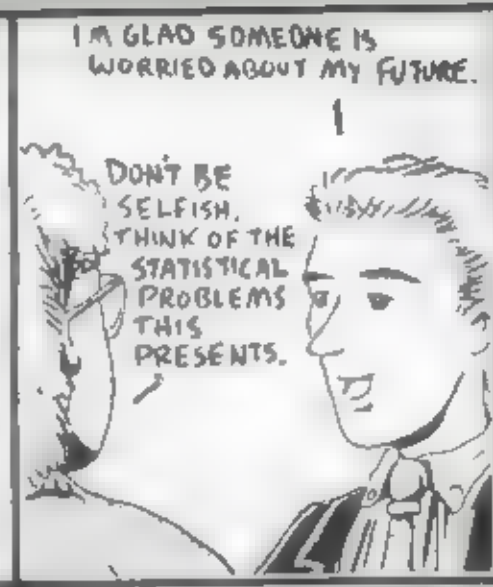 I'M GLAD SOMEONE IS
WORRIED ABOUT MY FUTURE.
DON'T BE
SELFISH.
THINK OF THE
STATISTICAL
PROBLEMS
THIS
PRESENTS.